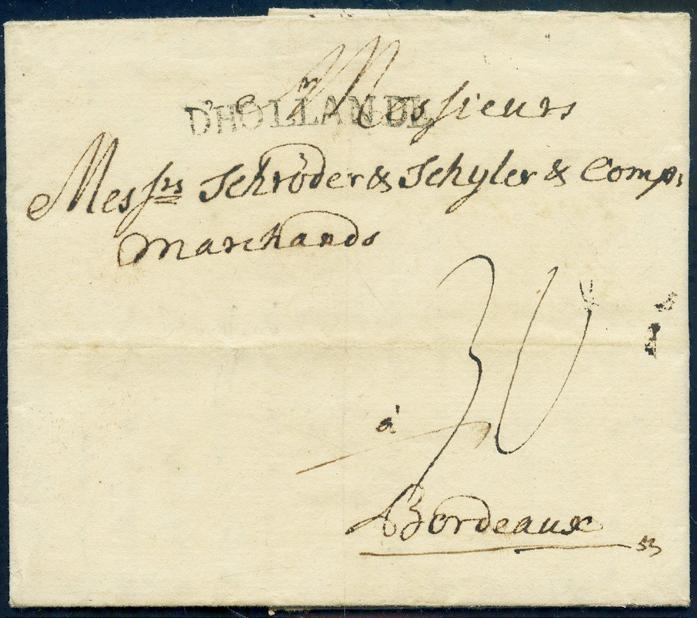 D'HOLLANDE
Messieurs
Mess.rs Schröder & Schyler & Comp:
Marchands
30
à
Bordeaux